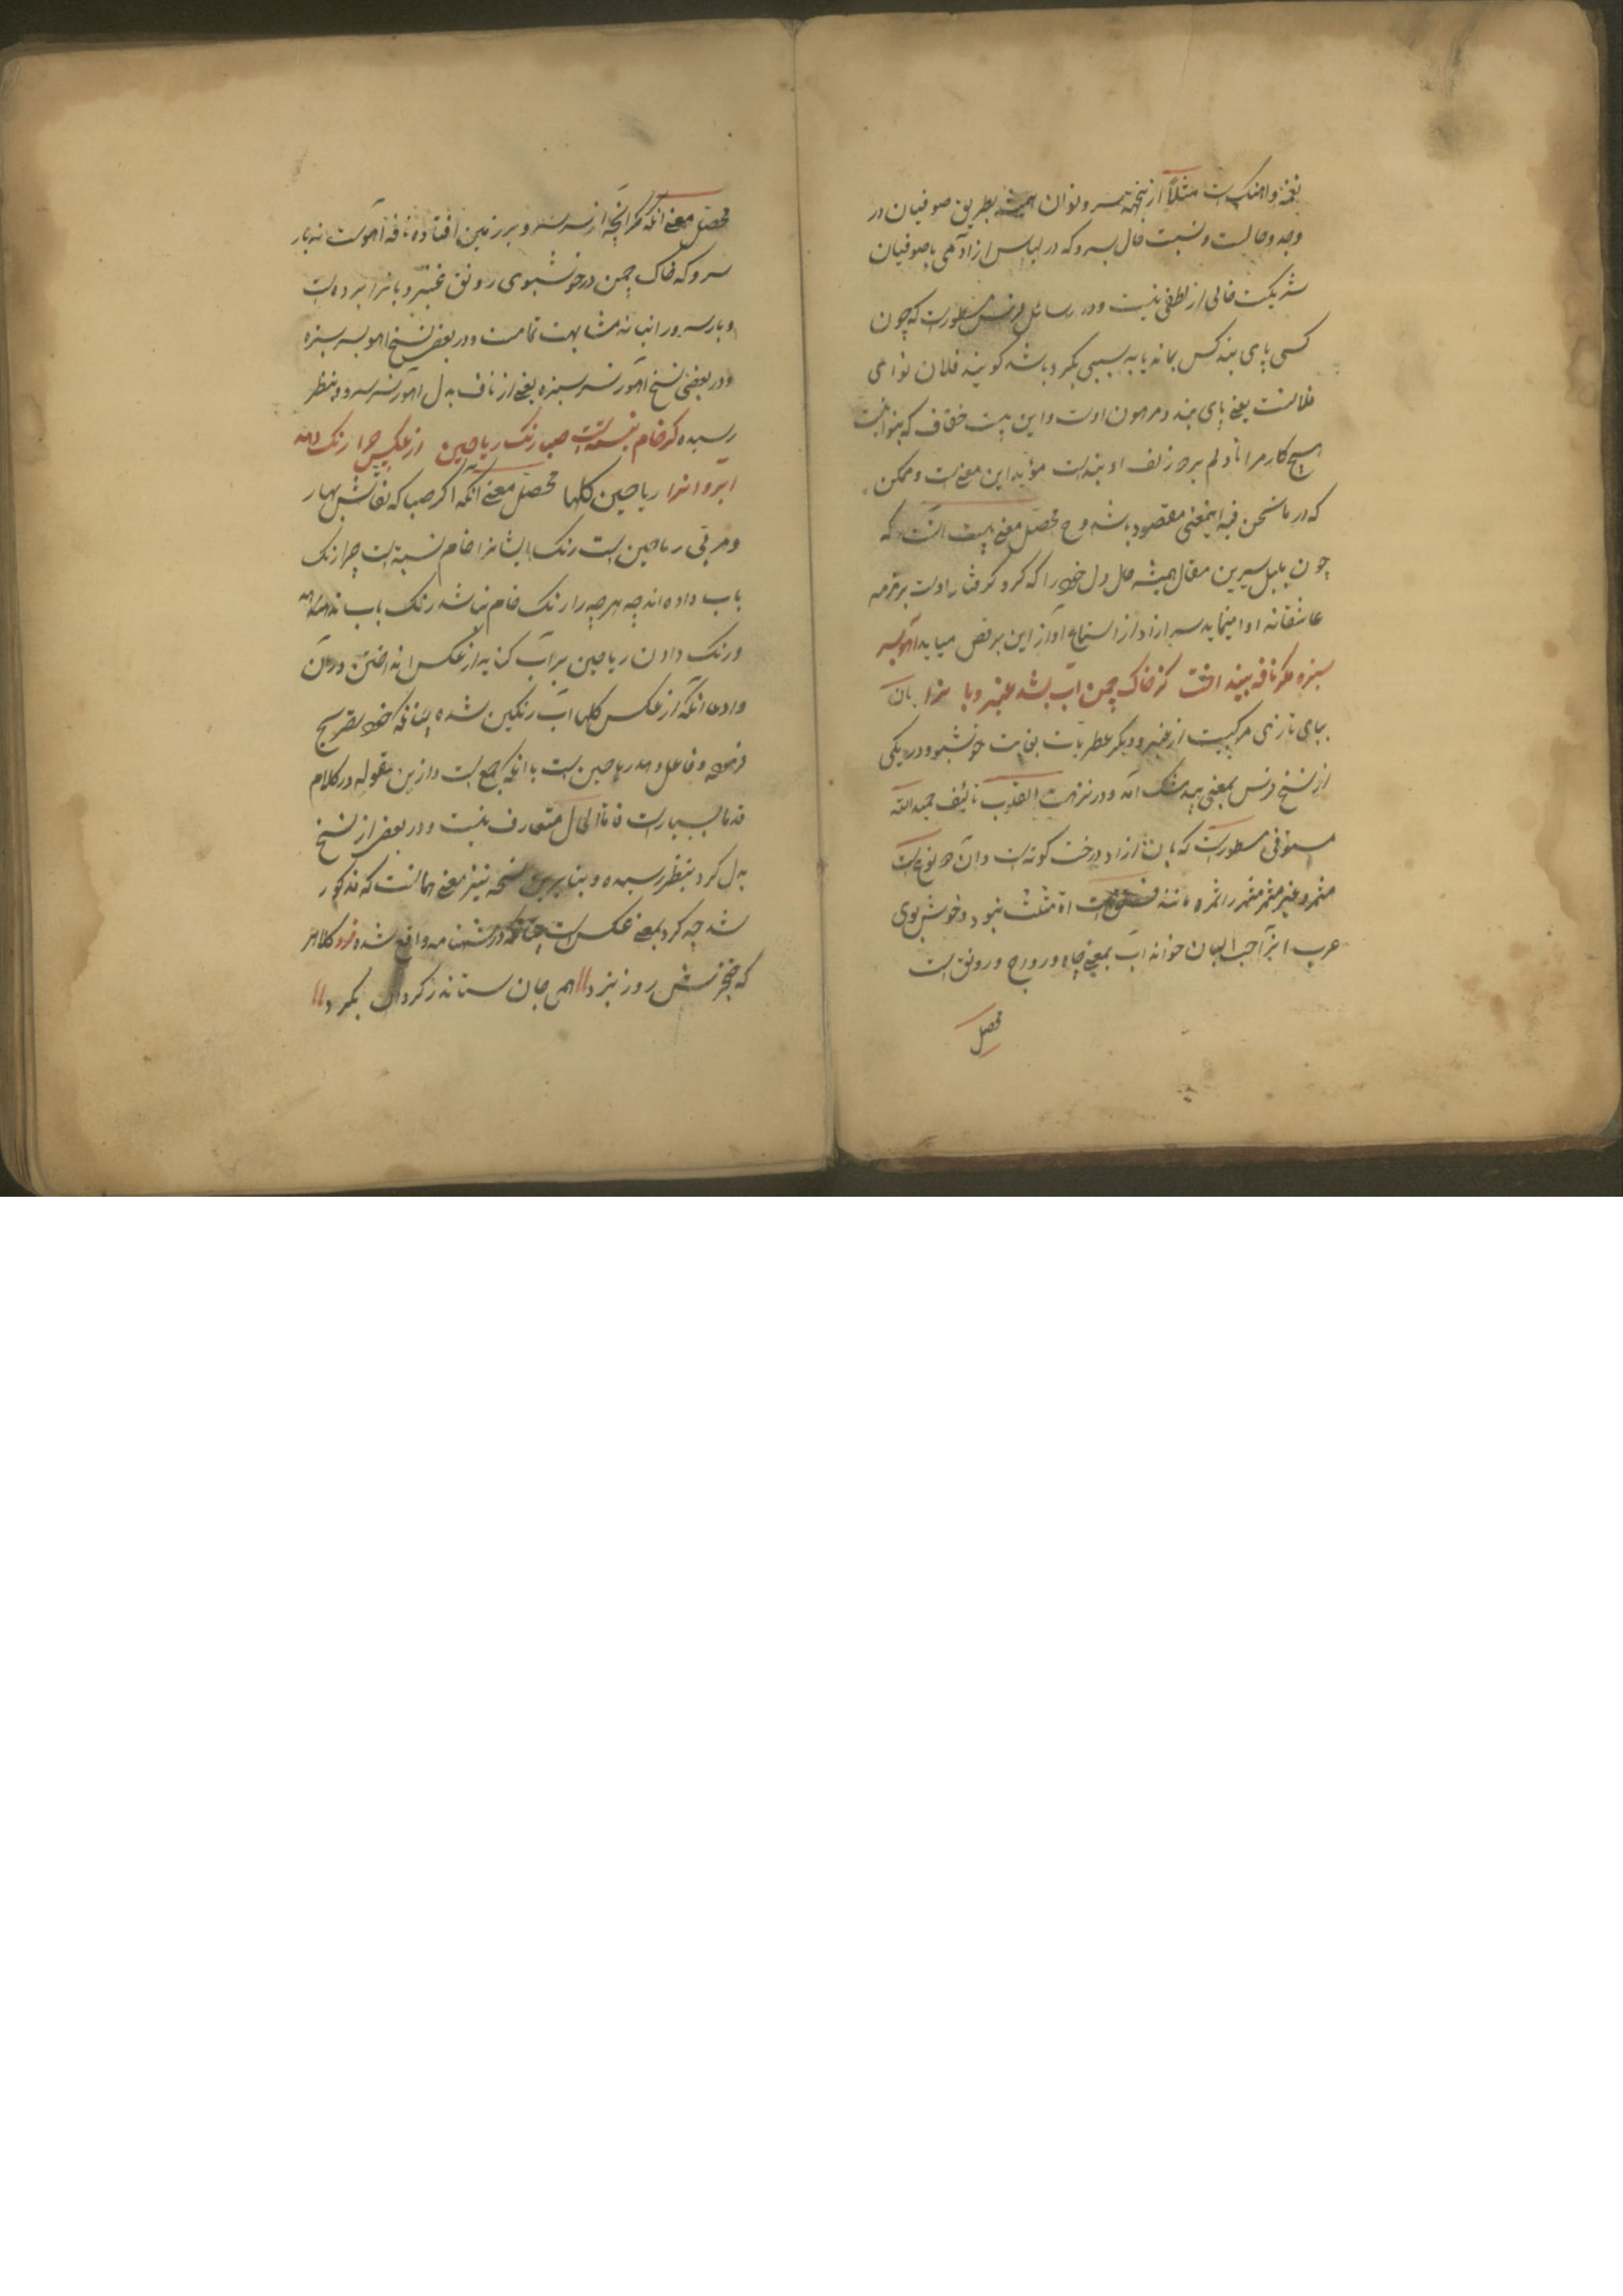 نغمه و اهنکست مثلاً از نغمه سرو نوان همیشه بطریق صوفیان در
وجد و حالست و نسبت حال بسرو که در لباس ازادمی با صوفیان
شریکست خالی از لطفی نیست و در رسائل فرس مسطورست که چون
کسی پای بند کس بخانه یا به سببی بکرو باشد کویند فلان نوای
فلانست یعنی پای بند و مرهون اوست و این بیت خفاف که
هیچ کار مرا تا دلم بر زلف او بندست مؤید این معنیست و ممکن
که در ما نحن فیه اینمعنی مقصود باشد و ح محصل معنی بیت انست که
چون بلبل شیرین مقال همیشه حال دل خود را که کرو کرفتار اوست بزمزمه
عاشقانه ادا مینماید سرو ازاد از استماع آواز این برقص میاید آهو بسر
سبزه مکر نافه بینداخت کز خاک چمن آب بشد عنبر و بانرا بان
ببای تازی مرکبیست از عنبر و دیکر عطریات بغایت خوشبو و در یکی
از نسخ فرس بمعنی بید مشک آمده و در نزهت القلوب تألیف حمدالله
مستوفی مسطورست که بان ازاد درخت کوتهست و آن دو نوع است
مثمر و غیر مثمر مثمر را ثمره مانند فستق است اما مثلث نبود و خوش بوی
عرب انرا حب البان خوانند آب بمعنی جاه و رواج و رونق است
محصل
محصل معنی انکه مکر انچه از سر سرو بر زمین افتاده نافه آهوست نه بار
سرو که خاک چمن در خوشبوی رونق عنبر و بانرا برده است
و بار سرو را نیافه مشابهت تمامست و در بعض نسخ اهو بسر سبزه
و در بعضی نسخ آهو ز سر سبزه یعنی از ناف بدل اهو ز سر سرو بنظر
رسیده کر خام نبستست صبا رنک ریاحین از عکس چرا رنک دهد
آب روانرا ریاحین کلها محصل معنی آنکه اکر صبا که نقاش بهار
و مربی ریاحین است رنک ایشانرا خام نبسته است چرا رنک
باب داده اند چه هر چه را رنک خام نباشد رنک باب ندهد
و رنک دادن ریاحین بر آب کنایه از عکس انداختن در آن
و ادعا انکه از عکس کلها آب رنکین شده چنانکه خود تصریح
فرموده و فاعل دهد ریاحین است با انکه جمع است و ازین مقوله در کلام
قدما بسیارست فاما الحال متعارف نیست و در بعض از نسخ
بدل کرد بنظر رسیده و بنابرین نسخه نیز معنی همانست که مذکور
شد چه کرد بمعنی عکس است چنانکه در شهنامه واقع شده فرد
که خنجرش روز نبرد همی جان ستاند ز کردان بکرد